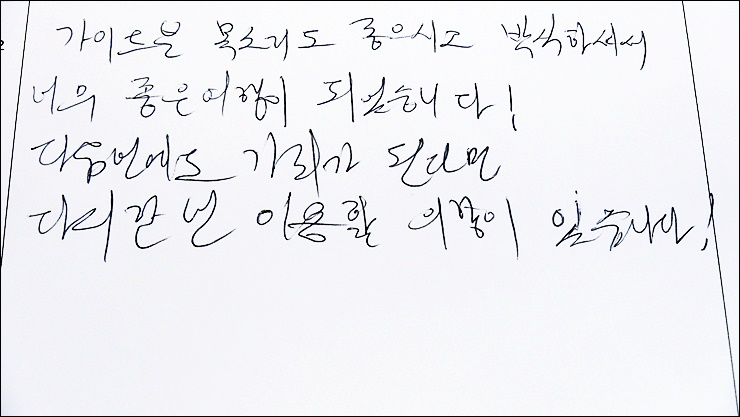 가이드분 목소리도 좋으시고 박식하셔서
너무 좋은 여행이 되었습니다!
다음번에도 기회가 된다면
다시한번 이용할 의향이 있습니다!